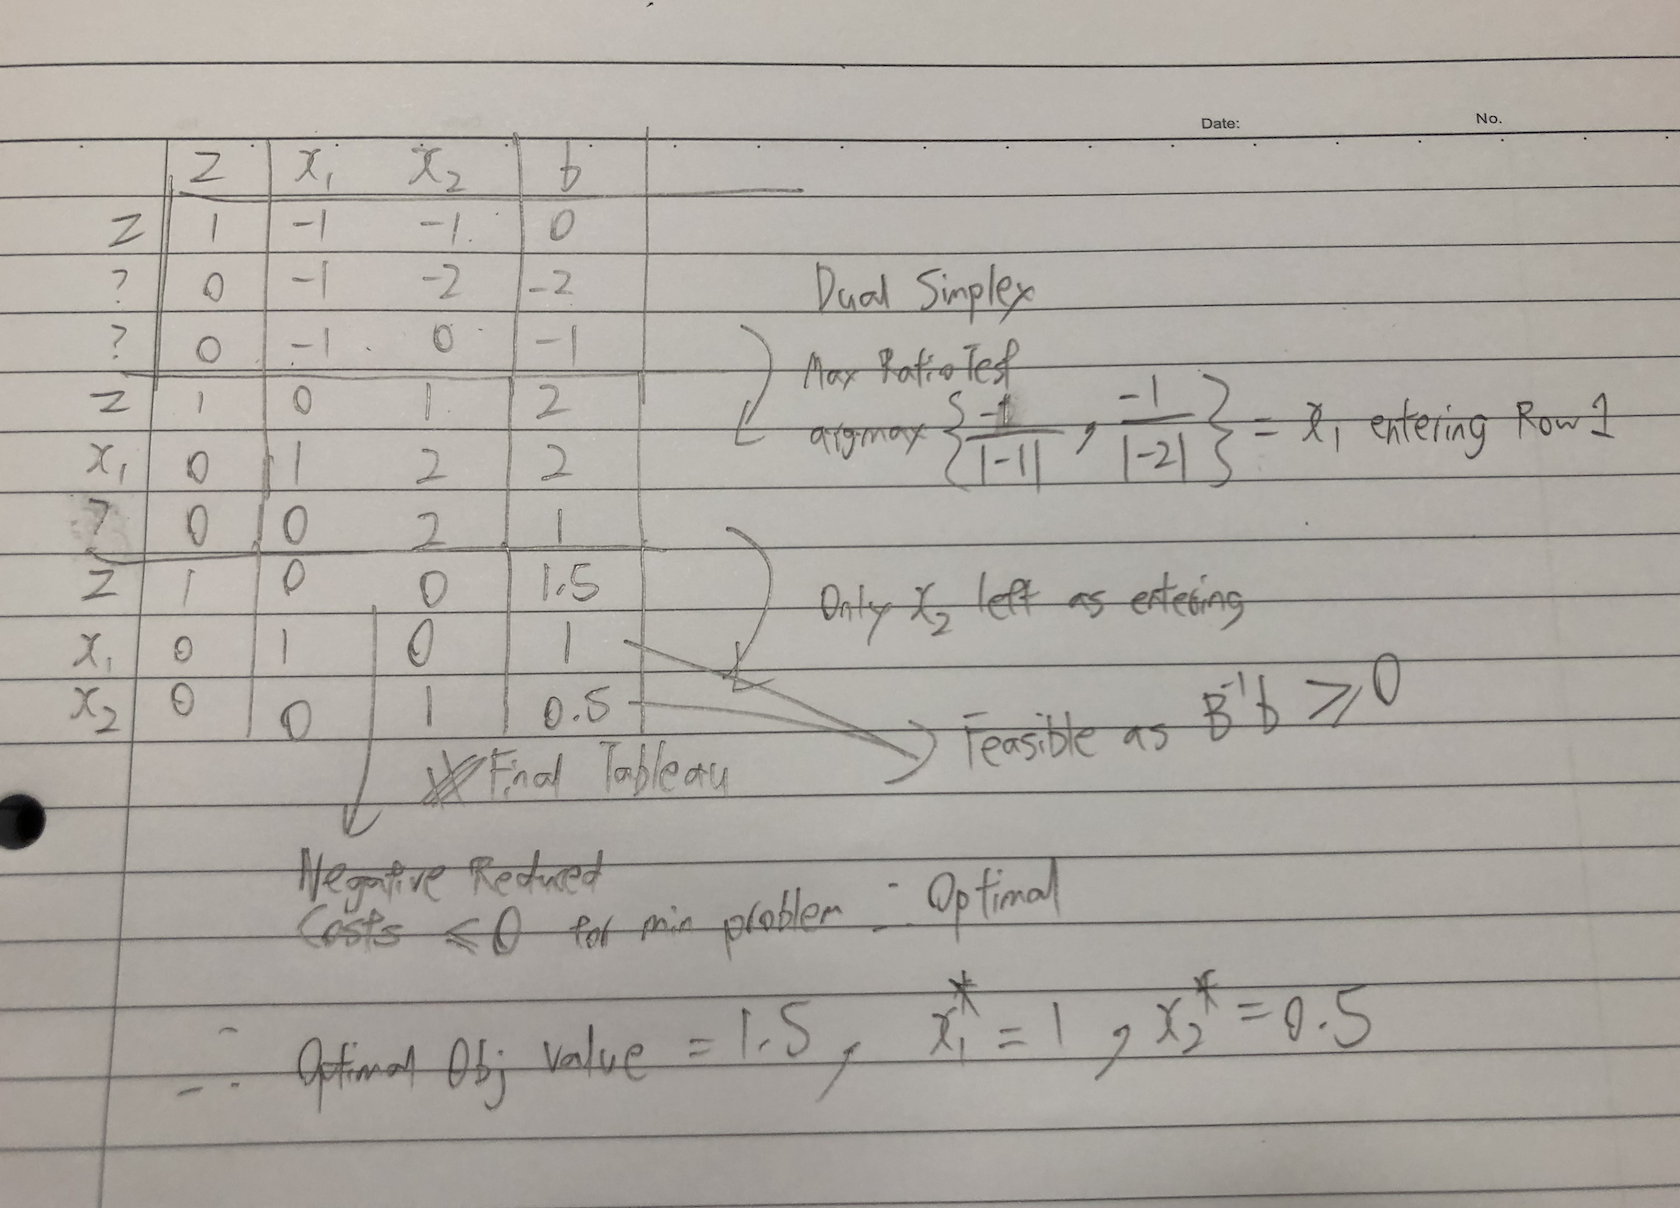 Date: No.
Z x₁ x₂ b
Z 1 -1 -1 0
? 0 -1 -2 -2
Dual Simplex
? 0 -1 0 -1
Max Ratio Test
Z 1 0 1 2
argmax { -1/|-1| , -1/|-2| } = x₁ entering Row 1
x₁ 0 1 2 2
? 0 0 2 1
Z 1 0 0 1.5
Only x₂ left as entering
x₁ 0 1 0 1
x₂ 0 0 1 0.5
Feasible as B⁻¹b ≥ 0
Final Tableau
Negative Reduced
Costs ≤ 0 for min problem ∴ Optimal
∴ Optimal Obj value = 1.5, x₁* = 1, x₂* = 0.5